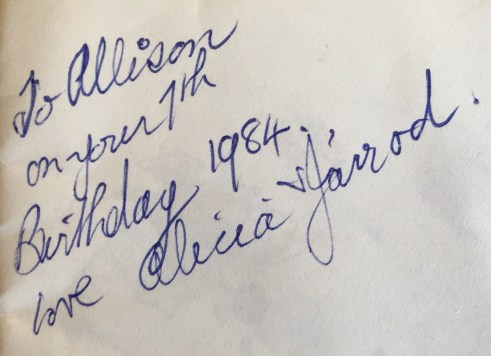 To Allison
on your 7th
Birthday 1984.
love Alicia & Jarrod.